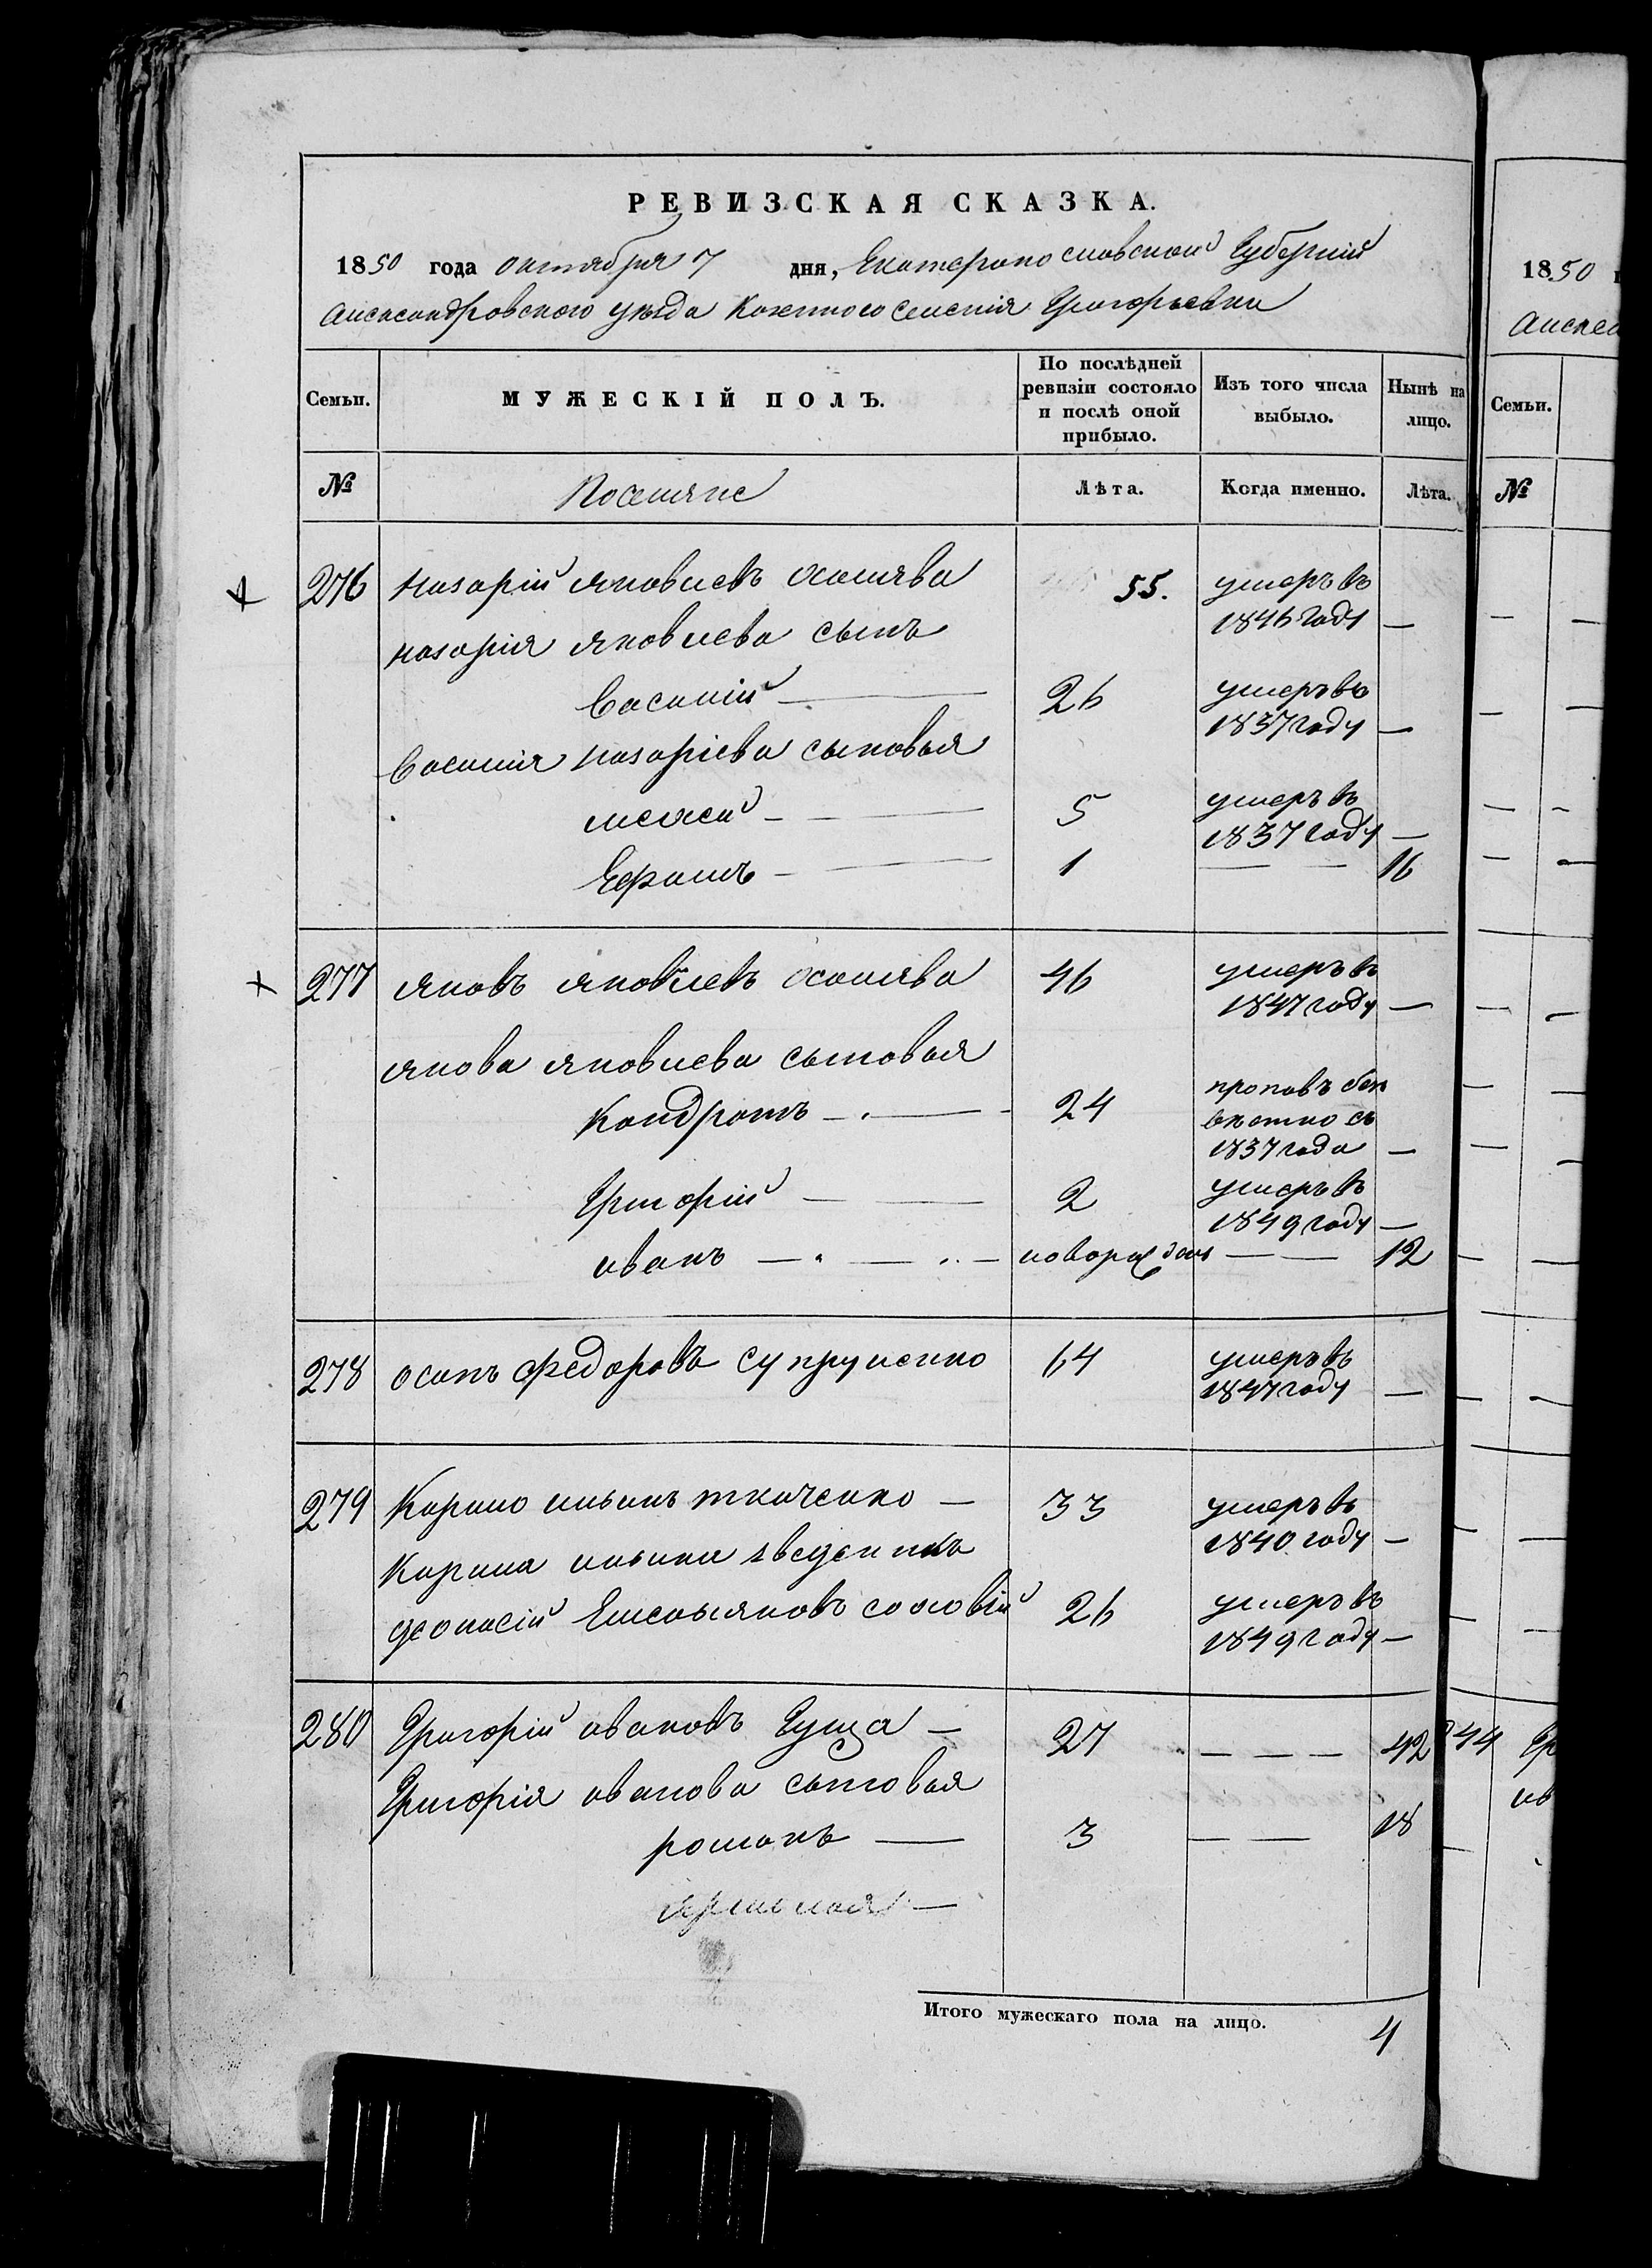 РЕВИЗСКАЯ СКАЗКА.
1850 года октября 7 дня, Екатеринославской Губерніи
Александровского уѣзда Казенного Селенія Григорьевки
Семьи. МУЖЕСКІЙ ПОЛЪ. По послѣдней ревизіи состояло и послѣ оной прибыло. Изъ того числа выбыло. Нынѣ на лицо.
№ Поселяне Лѣта. Когда именно. Лѣта.
276 Назарій Яковлевъ 55. умеръ въ
1846 году —
Назарія Яковлева сынъ
Василій — 26 умеръ въ
1837 году —
Василія Назаріева сыновья
5 умеръ въ
1837 году —
Ефимъ — 1 — 16
277 Яковъ Яковлевъ 46 умеръ въ
1847 году —
Якова Яковлева сыновья
Кондратъ — 24 пропавъ без
вѣстно съ
1837 года —
Григорій — 2 умеръ въ
1849 году —
Иванъ — новорожден — 12
278 Осипъ Федоровъ Супруненко 64 умеръ въ
1847 году —
279 Карпо Ильинъ Ткаченко — 33 умеръ въ
1840 году —
Карпа Ильина
Емельяновъ Соловій 26 умеръ въ
1849 году —
280 Григорій Ивановъ Гуща — 27 — — — 42
Григорія Иванова сыновья
Романъ — 3 — — 18
Итого мужескаго пола на лицо. 4
1850
Семьи.
№